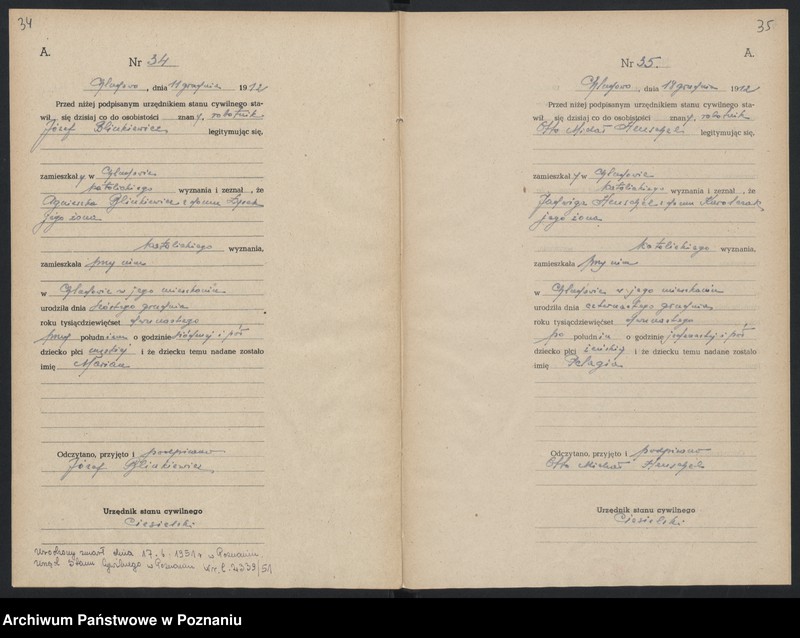 34
A.
Nr 34
, dnia 11 grudnia 1912
Przed niżej podpisanym urzędnikiem stanu cywilnego sta-
wił się dzisiaj co do osobistości znany, robotnik
Józef Blinkiewicz legitymując się,
zamieszkały w
katolickiego wyznania i zeznał , że
Agnieszka Blinkiewicz z domu
jego żona
katolickiego wyznania,
zamieszkała przy nim
w w jego mieszkaniu
urodziła dnia szóstego grudnia
roku tysiącdziewięćset dwunastego
przed południem o godzinie i pół
dziecko płci męskiej i że dziecku temu nadane zostało
imię Marian
Odczytano, przyjęto i podpisano
Józef Blinkiewicz
Urzędnik stanu cywilnego
Ciesielski
Urodzony zmarł dnia 17.6.1951 r w Poznaniu.
Urząd Stanu Cywilnego w Poznaniu Nr. 2339/51
35
A.
Nr 35.
, dnia 18 grudnia 1912
Przed niżej podpisanym urzędnikiem stanu cywilnego sta-
wił się dzisiaj co do osobistości znany, robotnik
Otto Michał Henschel legitymując się,
zamieszkały w
katolickiego wyznania i zeznał , że
Jadwiga Henschel z domu
jego żona
katolickiego wyznania,
zamieszkała przy nim
w w jego mieszkaniu
urodziła dnia czternastego grudnia
roku tysiącdziewięćset dwunastego
po południu o godzinie jedenastej i pół
dziecko płci żeńskiej i że dziecku temu nadane zostało
imię Pelagia
Odczytano, przyjęto i podpisano
Otto Michał Henschel
Urzędnik stanu cywilnego
Ciesielski
Archiwum Państwowe w Poznaniu